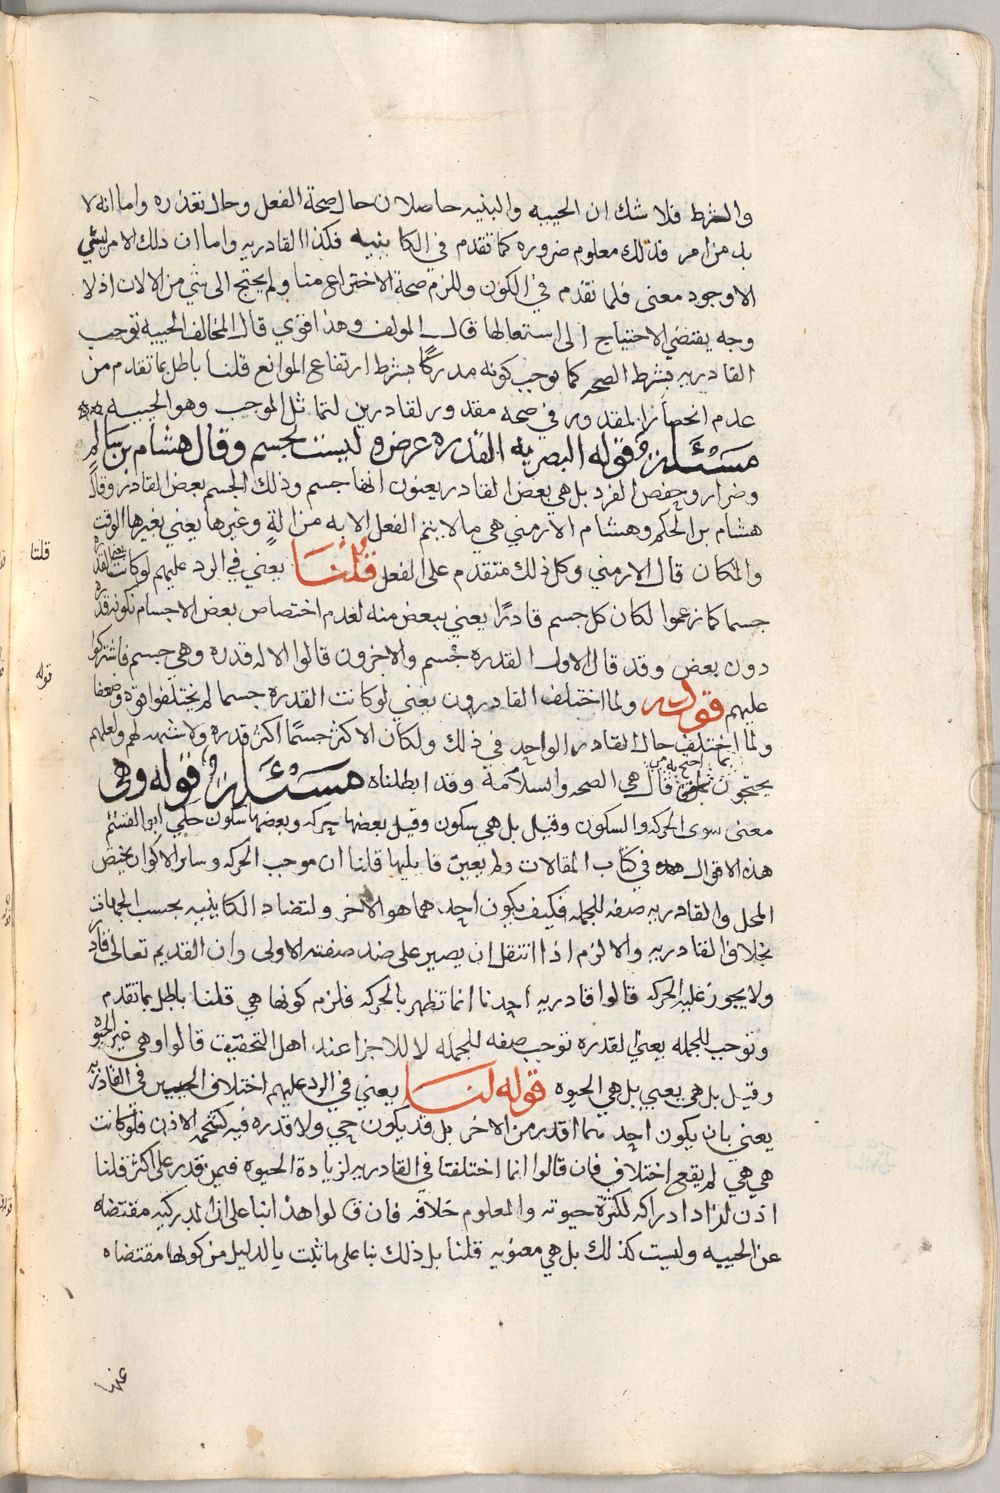 والشرط فلا شك ان الحييه والبنيه حاصلان حال صحة الفعل وحال تعذره واما انه لا
بد من امر فذلك معلوم ضروره كما تقدم في الكاينيه فكذا القادريه واما ان ذلك الامر ليس
الا وجود معنى فلما تقدم في الكون وللزم صحة الاختراع منا ولم يحتج الى شي من الالات اذ لا
وجه يقتضي الاحتياج الى استعمالها قال المولف وهذا اقوي قال المخالف الحييه توجب
القادريه بشرط الصحه كما توجب كونه مدركًا بشرط ارتفاع الموانع قلنا باطل بما تقدم من
عدم انحصار المقدور في صحه مقدور لقادرين لتماثل الموجب وهو الحييه
مسئله قوله البصريه القدره عرض وليست بجسم وقال هشام بن سالم
وضرار وحفص الفرد بل هي بعض القادر يعنون انها جسم وذلك الجسم بعض القادر وقال
هشام بن الحكم وهشام الارمني هي ما لا يتم الفعل الا به من الة وغيرها يعني بغيرها الوقت
والمكان قال الارمني وكل ذلك متقدم على الفعل قلنا يعني في الرد عليهم لو كانت القدره
جسما كما زعموا لكان كل جسم قادرًا يعني ببعض منه لعدم اختصاص بعض الاجسام بكونه قدره
دون بعض وقد قال الاول القدره جسم والاخرون قالوا الاله قدره وهي جسم فاشتركوا
عليهم قوله ولما اختلف القادرون يعني لو كانت القدره جسما لم يختلفوا قوة وضعفا
ولما اختلف حال القادر الواحد في ذلك ولكان الاكثر جسمًا اكثر قدره ولا شبهه لهم ولعلهم
يحتجون بما احتج به من قال هي الصحه والسلامة وقد ابطلناه مسئله قوله وهي
معنى سوى الحركه والسكون وقيل بل هي سكون وقيل بعضها حركه وبعضها سكون حكي ابو القسم
هذه الاقوال في كتاب المقالات ولم يعين قايليها قلنا ان موجب الحركه وساير الاكوان يخص
المحل والقادريه صفه للجمله فكيف يكون احدهما هو الاخر ولتضاد الكاينيه بحسب الجهات
بخلاف القادريه والا لزم اذا انتقل ان يصير على ضد صفته الاولى وان القديم تعالى قادر
ولا يجوز عليه الحركه قالوا قادريه احدنا انما تظهر بالحركه فلزم كونها هي قلنا باطل بما تقدم
وتوجب للجمله يعني القدره توجب صفه للجمله لا للاجزا عند اهل التحقيق قالوا وهي غير الحيوه
وقيل بل هي يعني بل هي الحيوه قوله لنا يعني في الرد عليهم اختلاف الحيين في القادريه
يعني بان يكون احدهما اقدر من الاخر بل قد يكون حي ولا قدره فيه كشحمة الاذن فلو كانت
هي هي لم يقع اختلاف فان قالوا انما اختلفتا في القادريه لزيادة الحيوه فيمن قدر على اكثر قلنا
اذن لزاد ادراكه لكثرة حيوته والمعلوم خلافه فان قالوا هذا بنا على ان المدركيه مقتضاه
عن الحييه وليست كذلك بل هي معنويه قلنا بل ذلك بنا على ما ثبت بالدليل من كونها مقتضاه
عنها
قلنا
قوله